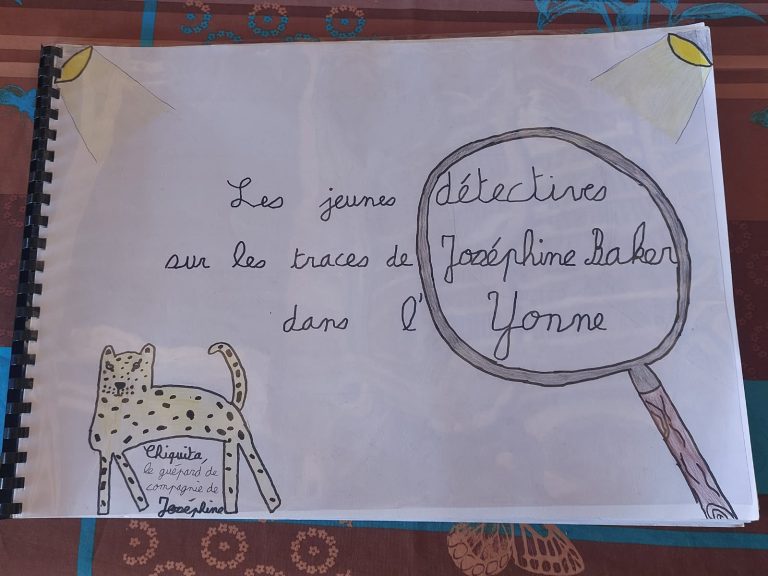 Les jeunes détectives
sur les traces de Joséphine Baker
dans l'Yonne
Chiquita,
le guépard de
compagnie de
Joséphine